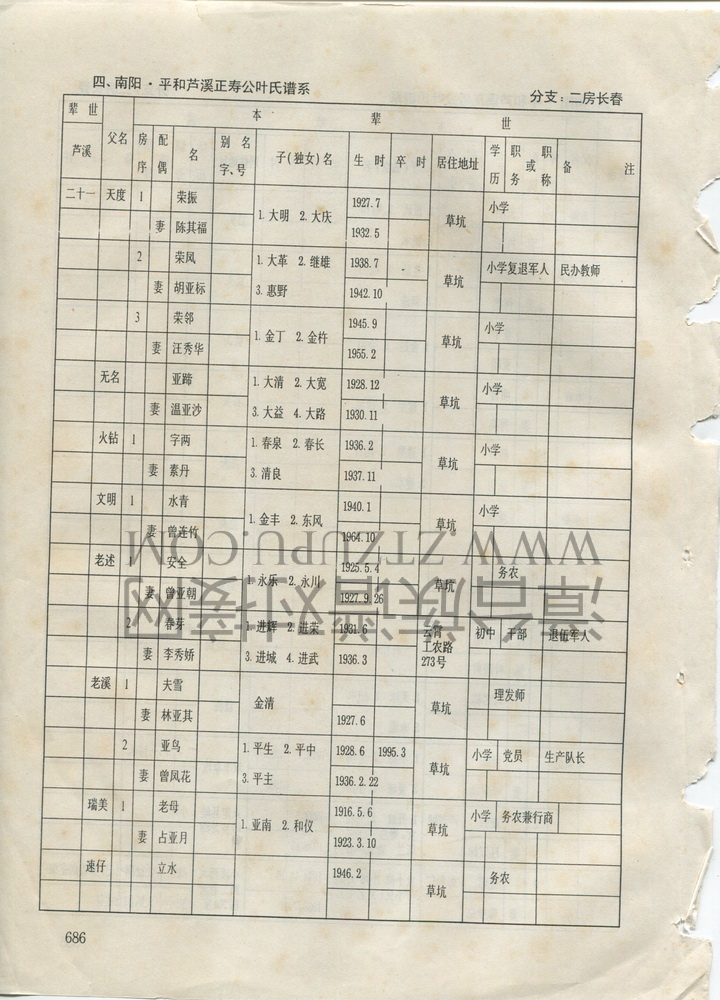 四、南阳·平和芦溪正寿公叶氏谱系 分支：二房长春
辈世 父名 本 辈 世
芦溪 房序 配偶 名 别名字、号 子(独女)名 生时 卒时 居住地址 学历 职或职务称 备注
二十一 天度 1 荣振 1.大明 2.大庆 1927.7 草坑 小学
妻 陈其福 1932.5
2 荣凤 1.大革 2.继雄 1938.7 草坑 小学 复退军人 民办教师
妻 胡亚标 3.惠野 1942.10
3 荣邻 1.金丁 2.金杵 1945.9 草坑 小学
妻 汪秀华 1955.2
无名 亚蹄 1.大清 2.大宽 1928.12 草坑 小学
妻 温亚沙 3.大益 4.大路 1930.11
火钻 1 字两 1.春泉 2.春长 1936.2 草坑 小学
妻 素丹 3.清良 1937.11
文明 1 水青 1.金丰 2.东风 1940.1 草坑 小学
妻 曾连竹 1964.10
老述 1 安全 1.永乐 2.永川 1925.5.4 草坑 务农
妻 曾亚朝 1927.9.26
2 春芽 1.进辉 2.进荣 1931.6 云霄工农路273号 初中 干部 退伍军人
妻 李秀娇 3.进城 4.进武 1936.3
老溪 1 夫雪 金清 草坑 理发师
妻 林亚其 1927.6
2 亚鸟 1.平生 2.平中 1928.6 1995.3 草坑 小学 党员 生产队长
妻 曾凤花 3.平主 1936.2.22
瑞美 1 老母 1.亚南 2.和仪 1916.5.6 草坑 小学 务农兼行商
妻 占亚月 1923.3.10
速仔 立水 1946.2 草坑 务农
686
WWW.ZTZUPU.COM
漳台族谱对接网